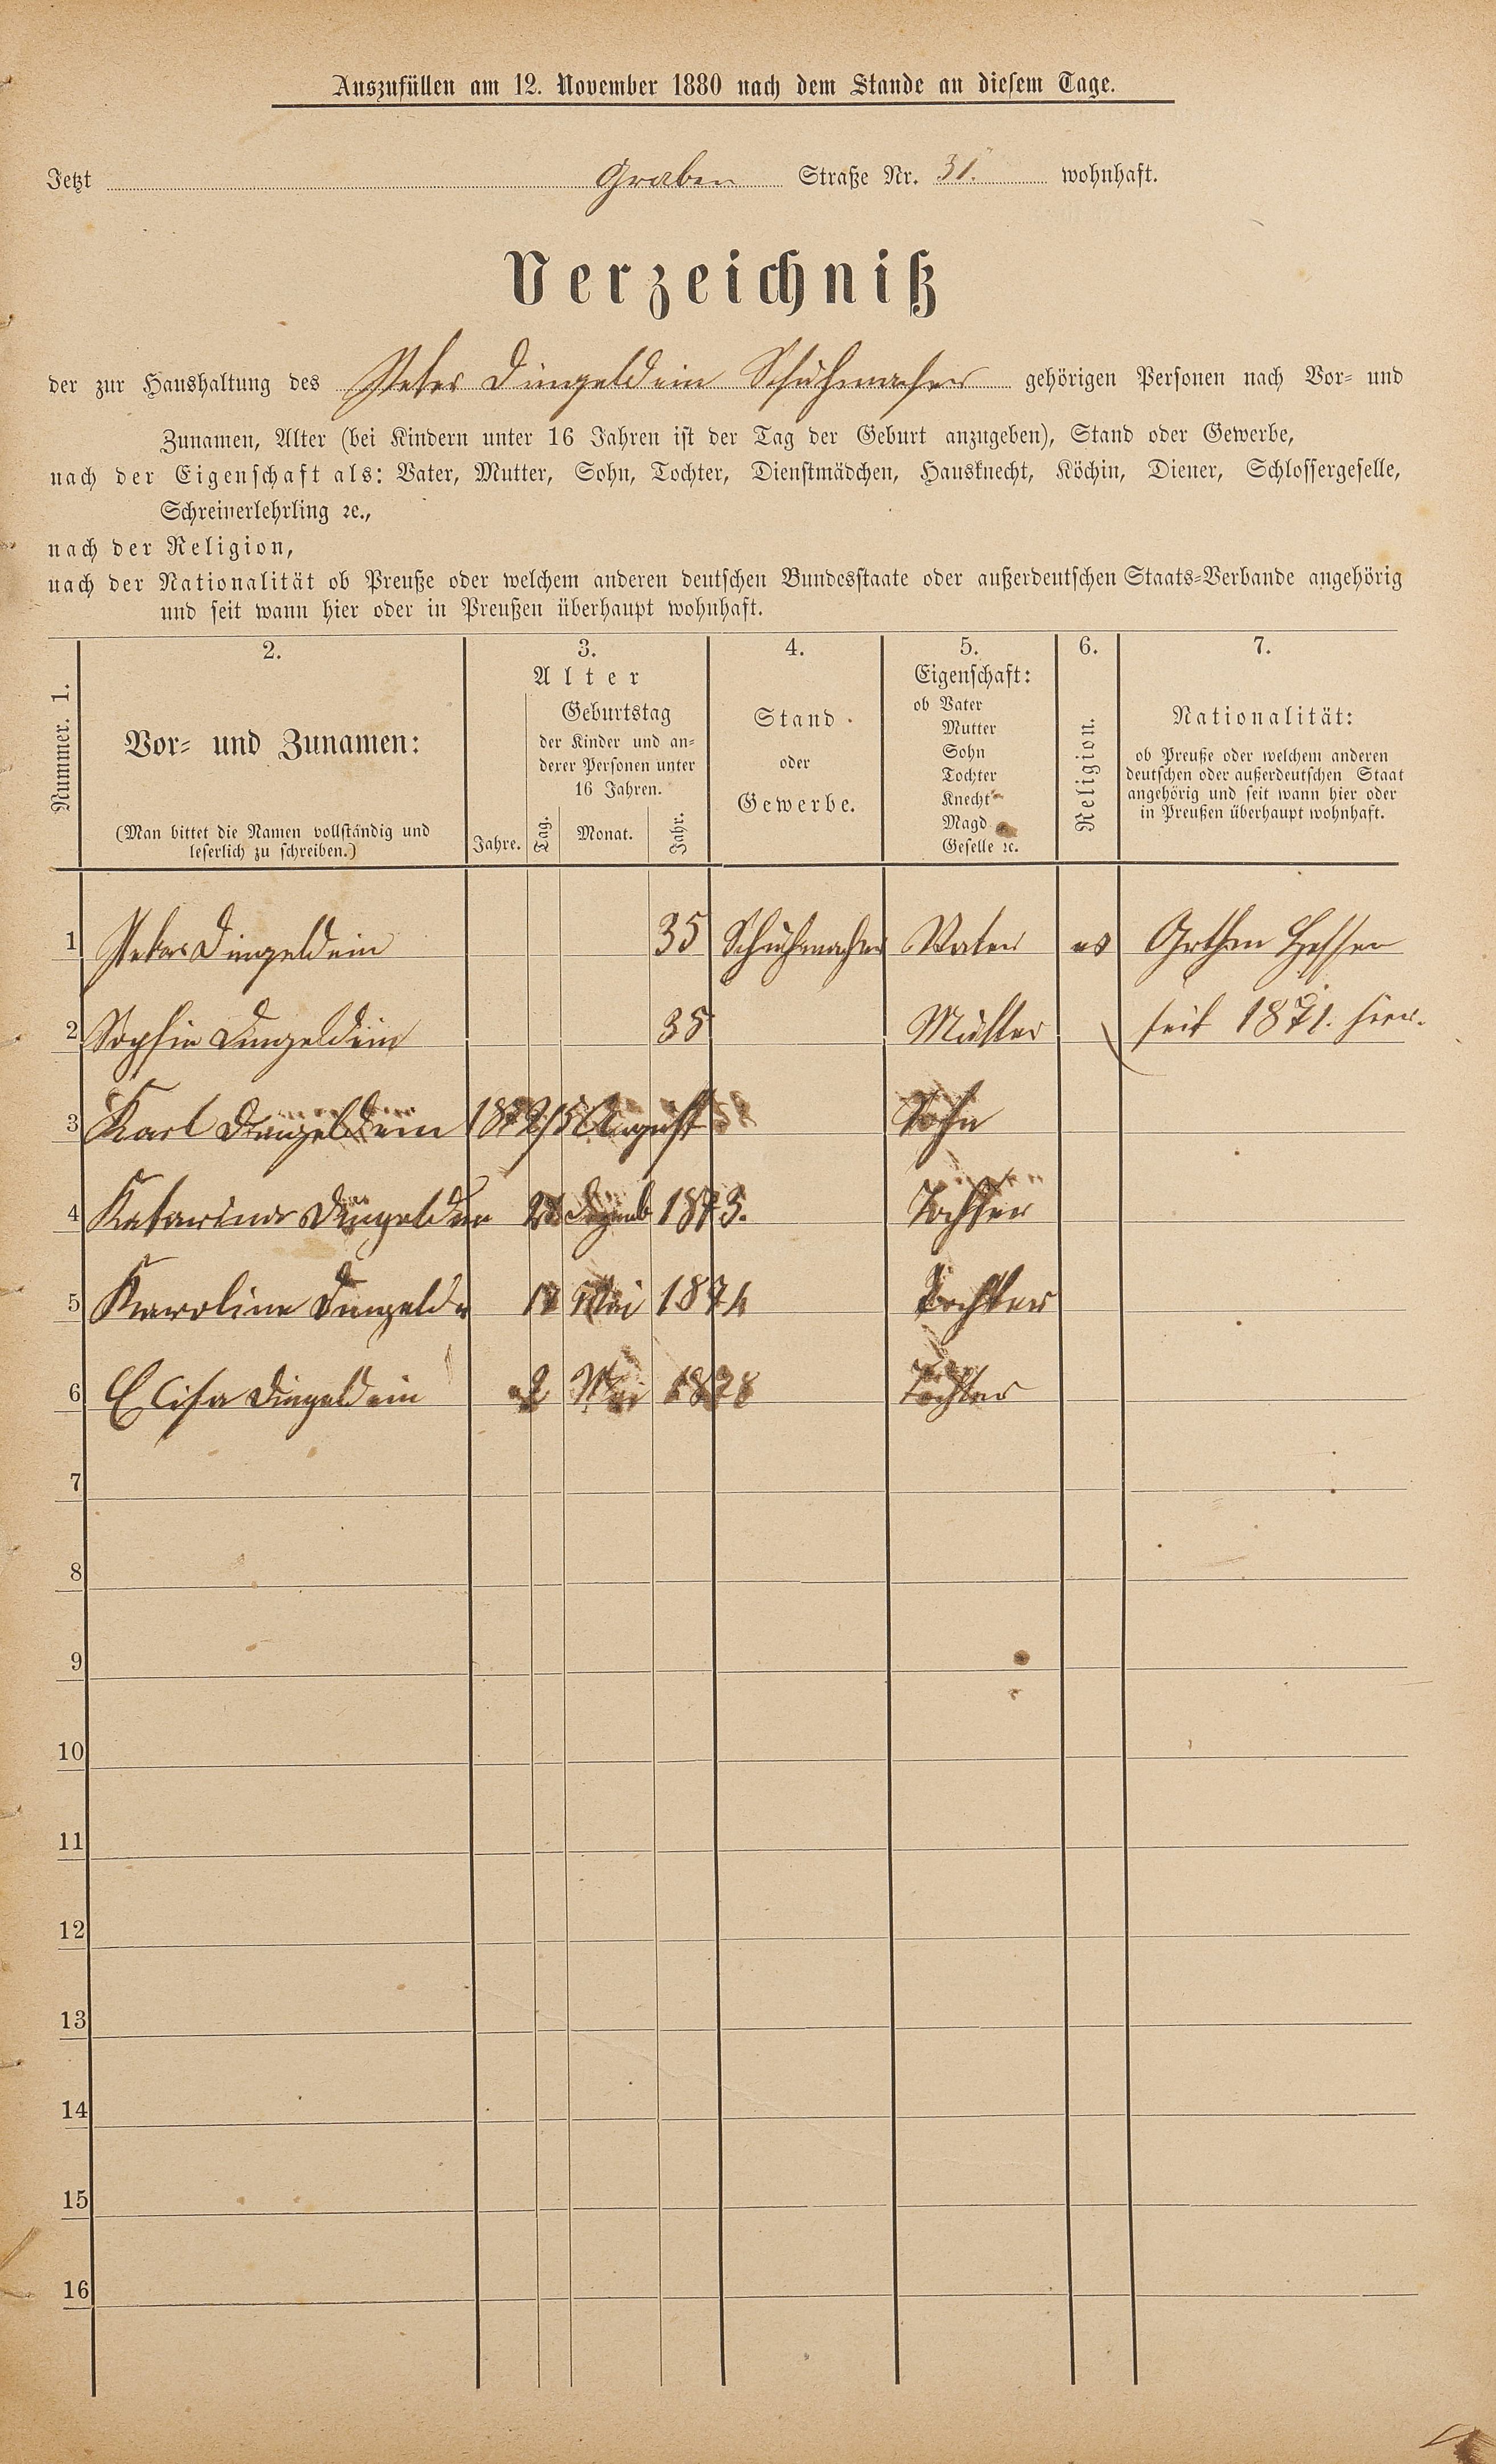 Auszufüllen am 12. November 1880 nach dem Stande an diesem Tage.
Jetzt Graben Straße Nr. 31. wohnhaft.
Verzeichniß
der zur Haushaltung des Peter Dingeldein Schuhmacher gehörigen Personen nach Vor- und
Zunamen, Alter (bei Kindern unter 16 Jahren ist der Tag der Geburt anzugeben), Stand oder Gewerbe,
nach der Eigenschaft als: Vater, Mutter, Sohn, Tochter, Dienstmädchen, Hausknecht, Köchin, Diener, Schlossergeselle,
Schreinerlehrling ꝛc.,
nach der Religion,
nach der Nationalität ob Preuße oder welchem anderen deutschen Bundesstaate oder außerdeutschen Staats-Verbande angehörig
und seit wann hier oder in Preußen überhaupt wohnhaft.
Nummer. 1.
2.
Vor- und Zunamen:
(Man bittet die Namen vollständig und
leserlich zu schreiben.)
3.
Alter
Geburtstag
der Kinder und an-
derer Personen unter
16 Jahren.
Jahre. Tag. Monat. Jahr.
4.
Stand
oder
Gewerbe.
5.
Eigenschaft:
ob Vater
Mutter
Sohn
Tochter
Knecht
Magd
Geselle ꝛc.
6.
Religion.
7.
Nationalität:
ob Preuße oder welchem anderen
deutschen oder außerdeutschen Staat
angehörig und seit wann hier oder
in Preußen überhaupt wohnhaft.
1 Peter Dingeldein 35 Schuhmacher Vater Hessen
2 Sophie Dingeldein 35 Mutter seit 1871. hier.
3 Karl Dingeldein 1872 August Sohn
4 Katarina Dingeldein Dezemb 1873. Tochter
5 Karoline Dingelde 17 Mai 1874 Tochter
6 Elisa Dingeldein 2 Mai 1878 Tochter
7
8
9
10
11
12
13
14
15
16